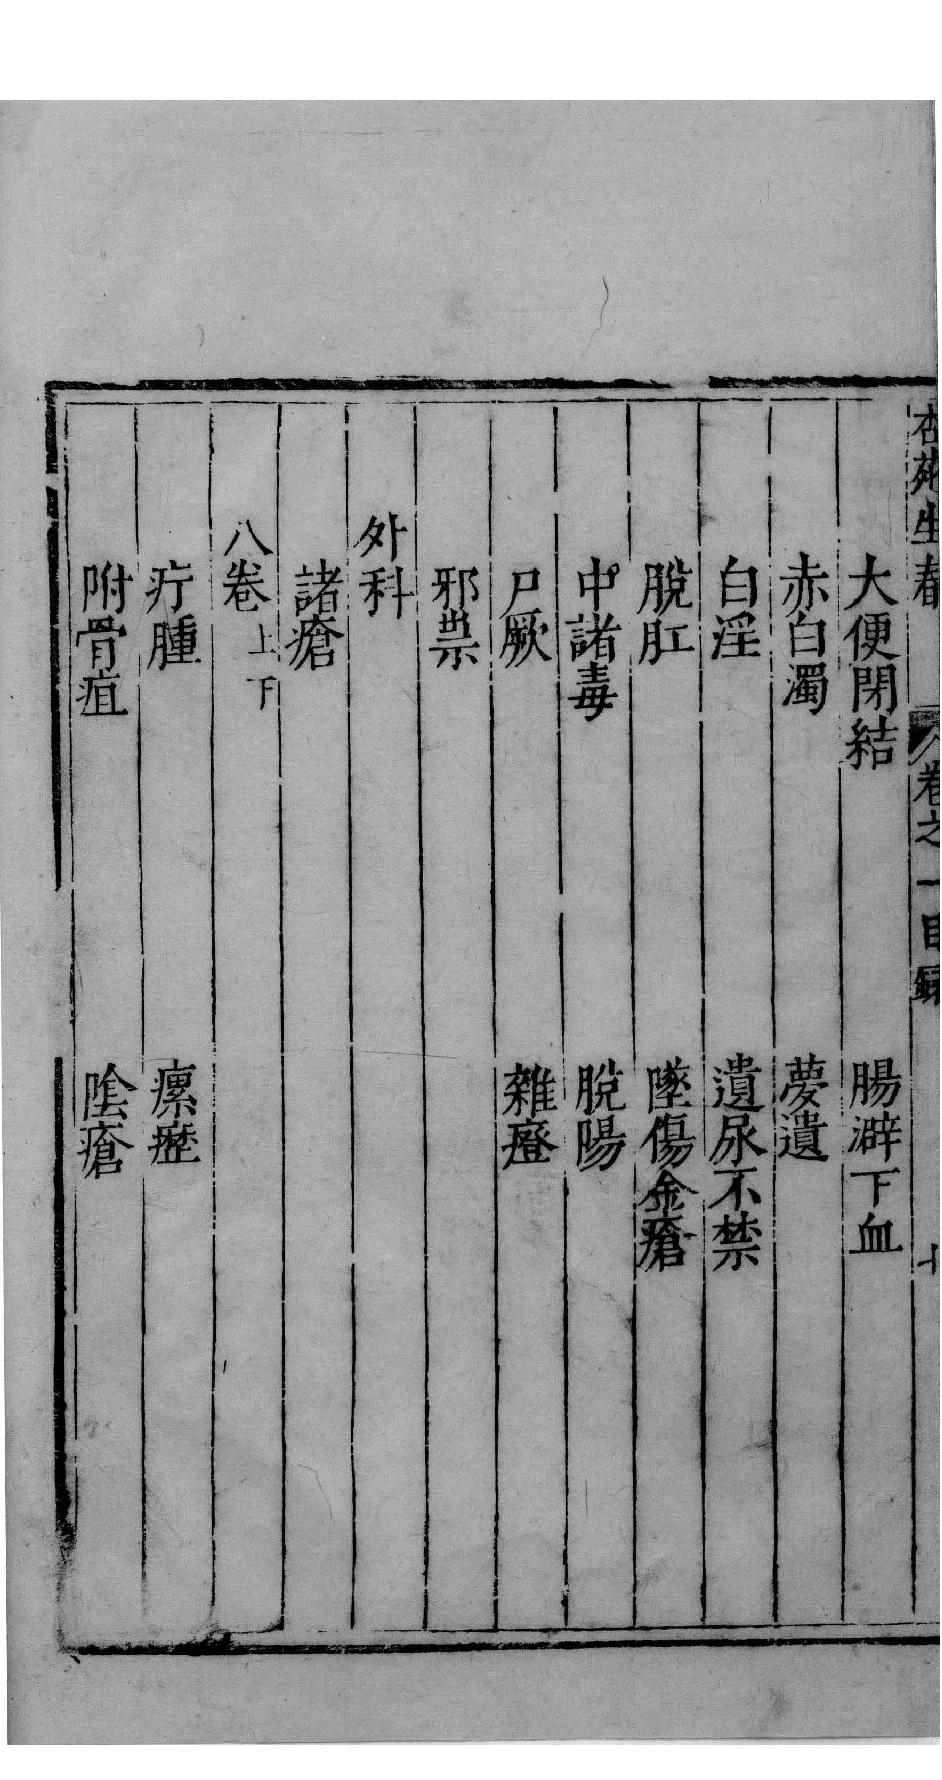 杏苑生春 卷之一目録
大便閉結 腸澼下血
赤白濁 夢遺
白淫 遺尿不禁
脫肛 墜傷金瘡
中諸毒 脫陽
尸厥 雜證
邪祟
外科
諸瘡
八卷上下
疔腫 瘰癧
附骨疽 陰瘡